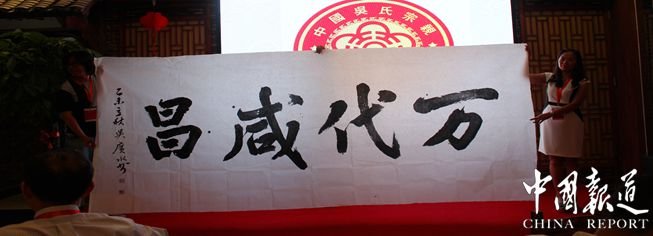 中國吳氏宗親
万代咸昌
乙未立秋吳廣
中國報道
CHINA REPORT